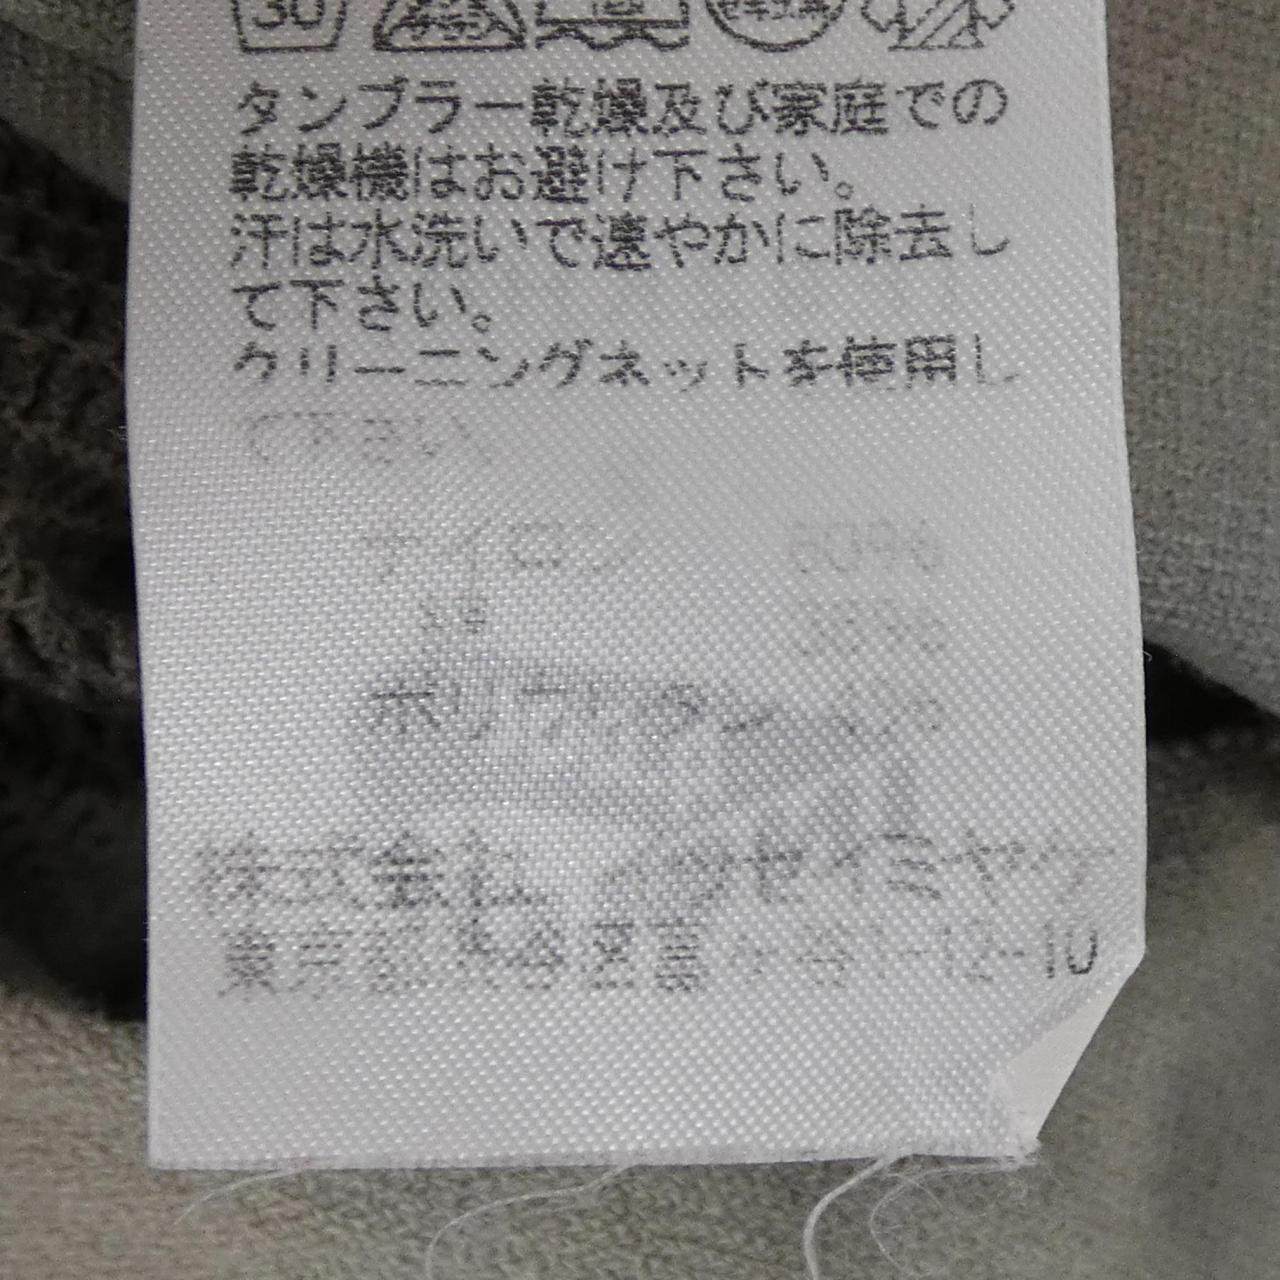 30
タンブラー乾燥及び家庭での
乾燥機はお避け下さい。
汗は水洗いで速やかに除去し
て下さい。
クリーニングネットを使用し
て下さい
ナイロン
綿
ポリウレタン
株式会社 イッセイミヤケ
東京都渋谷区富ヶ谷1-12-10